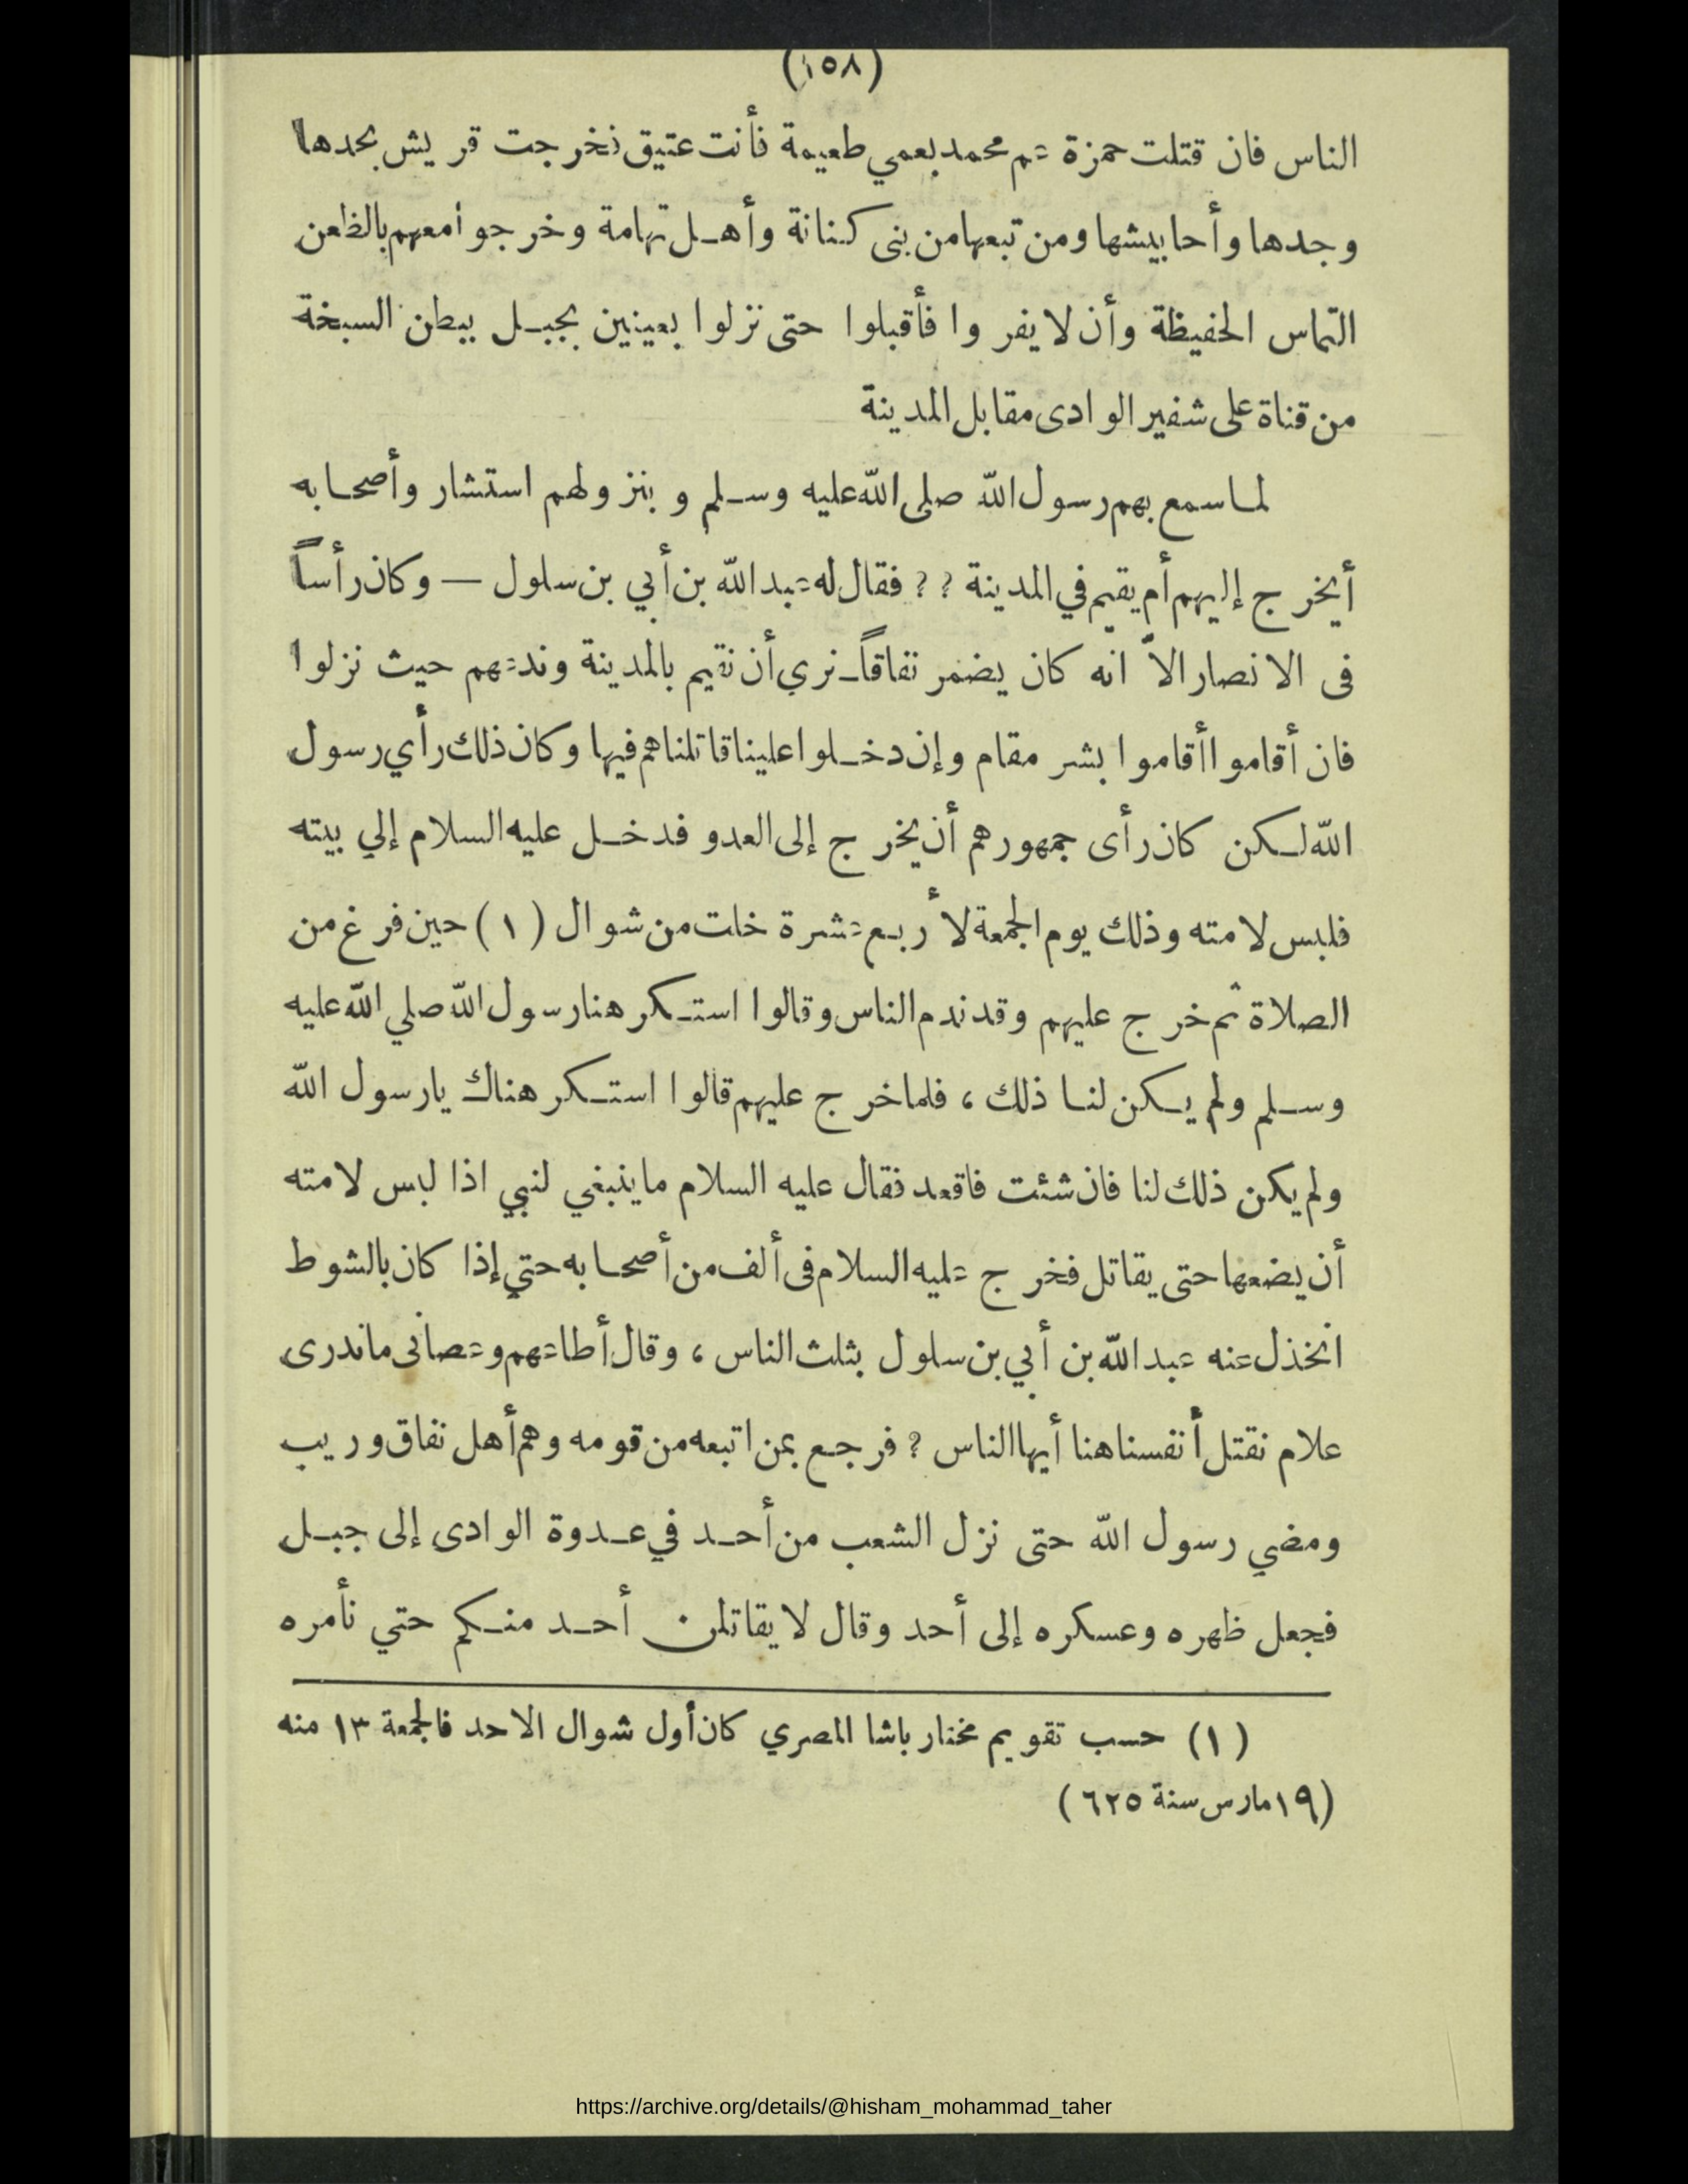 (١٥٨)
الناس فان قتلت حمزة عم محمد بعمي طعيمة فأنت عتيق فخرجت قريش بحدها
وجدها وأحابيشها ومن تبعها من بنى كنانة وأهل تهامة وخرجوا معهم بالظعن
التماس الحفيظة وأن لا يفروا فأقبلوا حتى نزلوا بعينين بجبل ببطن السبخة
من قناة على شفير الوادى مقابل المدينة
لما سمع بهم رسول الله صلى الله عليه وسلم و بنزولهم استشار وأصحابه
أيخرج إليهم أم يقيم في المدينة ؟ ؟ فقال له عبد الله بن أبي بن سلول — وكان رأساً
فى الانصار الاّ انه كان يضمر نفاقاً ـ نري أن نقيم بالمدينة وندعهم حيث نزلوا
فان أقاموا أقاموا بشر مقام وإن دخلوا علينا قاتلناهم فيها وكان ذلك رأي رسول
الله لكن كان رأى جمهورهم أن يخرج إلى العدو فدخل عليه السلام إلي بيته
فلبس لامته وذلك يوم الجمعة لأربع عشرة خلت من شوال (١) حين فرغ من
الصلاة ثم خرج عليهم وقد ندم الناس وقالوا استكرهنا رسول الله صلي الله عليه
وسلم ولم يكن لنا ذلك ، فلما خرج عليهم قالوا استكرهناك يارسول الله
ولم يكن ذلك لنا فان شئت فاقعد فقال عليه السلام ما ينبغي لنبي اذا لبس لامته
أن يضعها حتى يقاتل فخرج عليه السلام فى ألف من أصحابه حتي إذا كان بالشوط
انخذل عنه عبد الله بن أبي بن سلول بثلث الناس ، وقال أطاعهم وعصانى ما ندرى
علام نقتل أنفسنا هنا أيها الناس ؟ فرجع بمن اتبعه من قومه وهم أهل نفاق وريب
ومضي رسول الله حتى نزل الشعب من أحد في عدوة الوادى إلى جبل
فجعل ظهره وعسكره إلى أحد وقال لا يقاتلن أحد منكم حتي نأمره
(١) حسب تقويم مختار باشا المصري كان أول شوال الاحد فالجمعة ١٣ منه
(١٩ مارس سنة ٦٢٥)
https://archive.org/details/@hisham_mohammad_taher